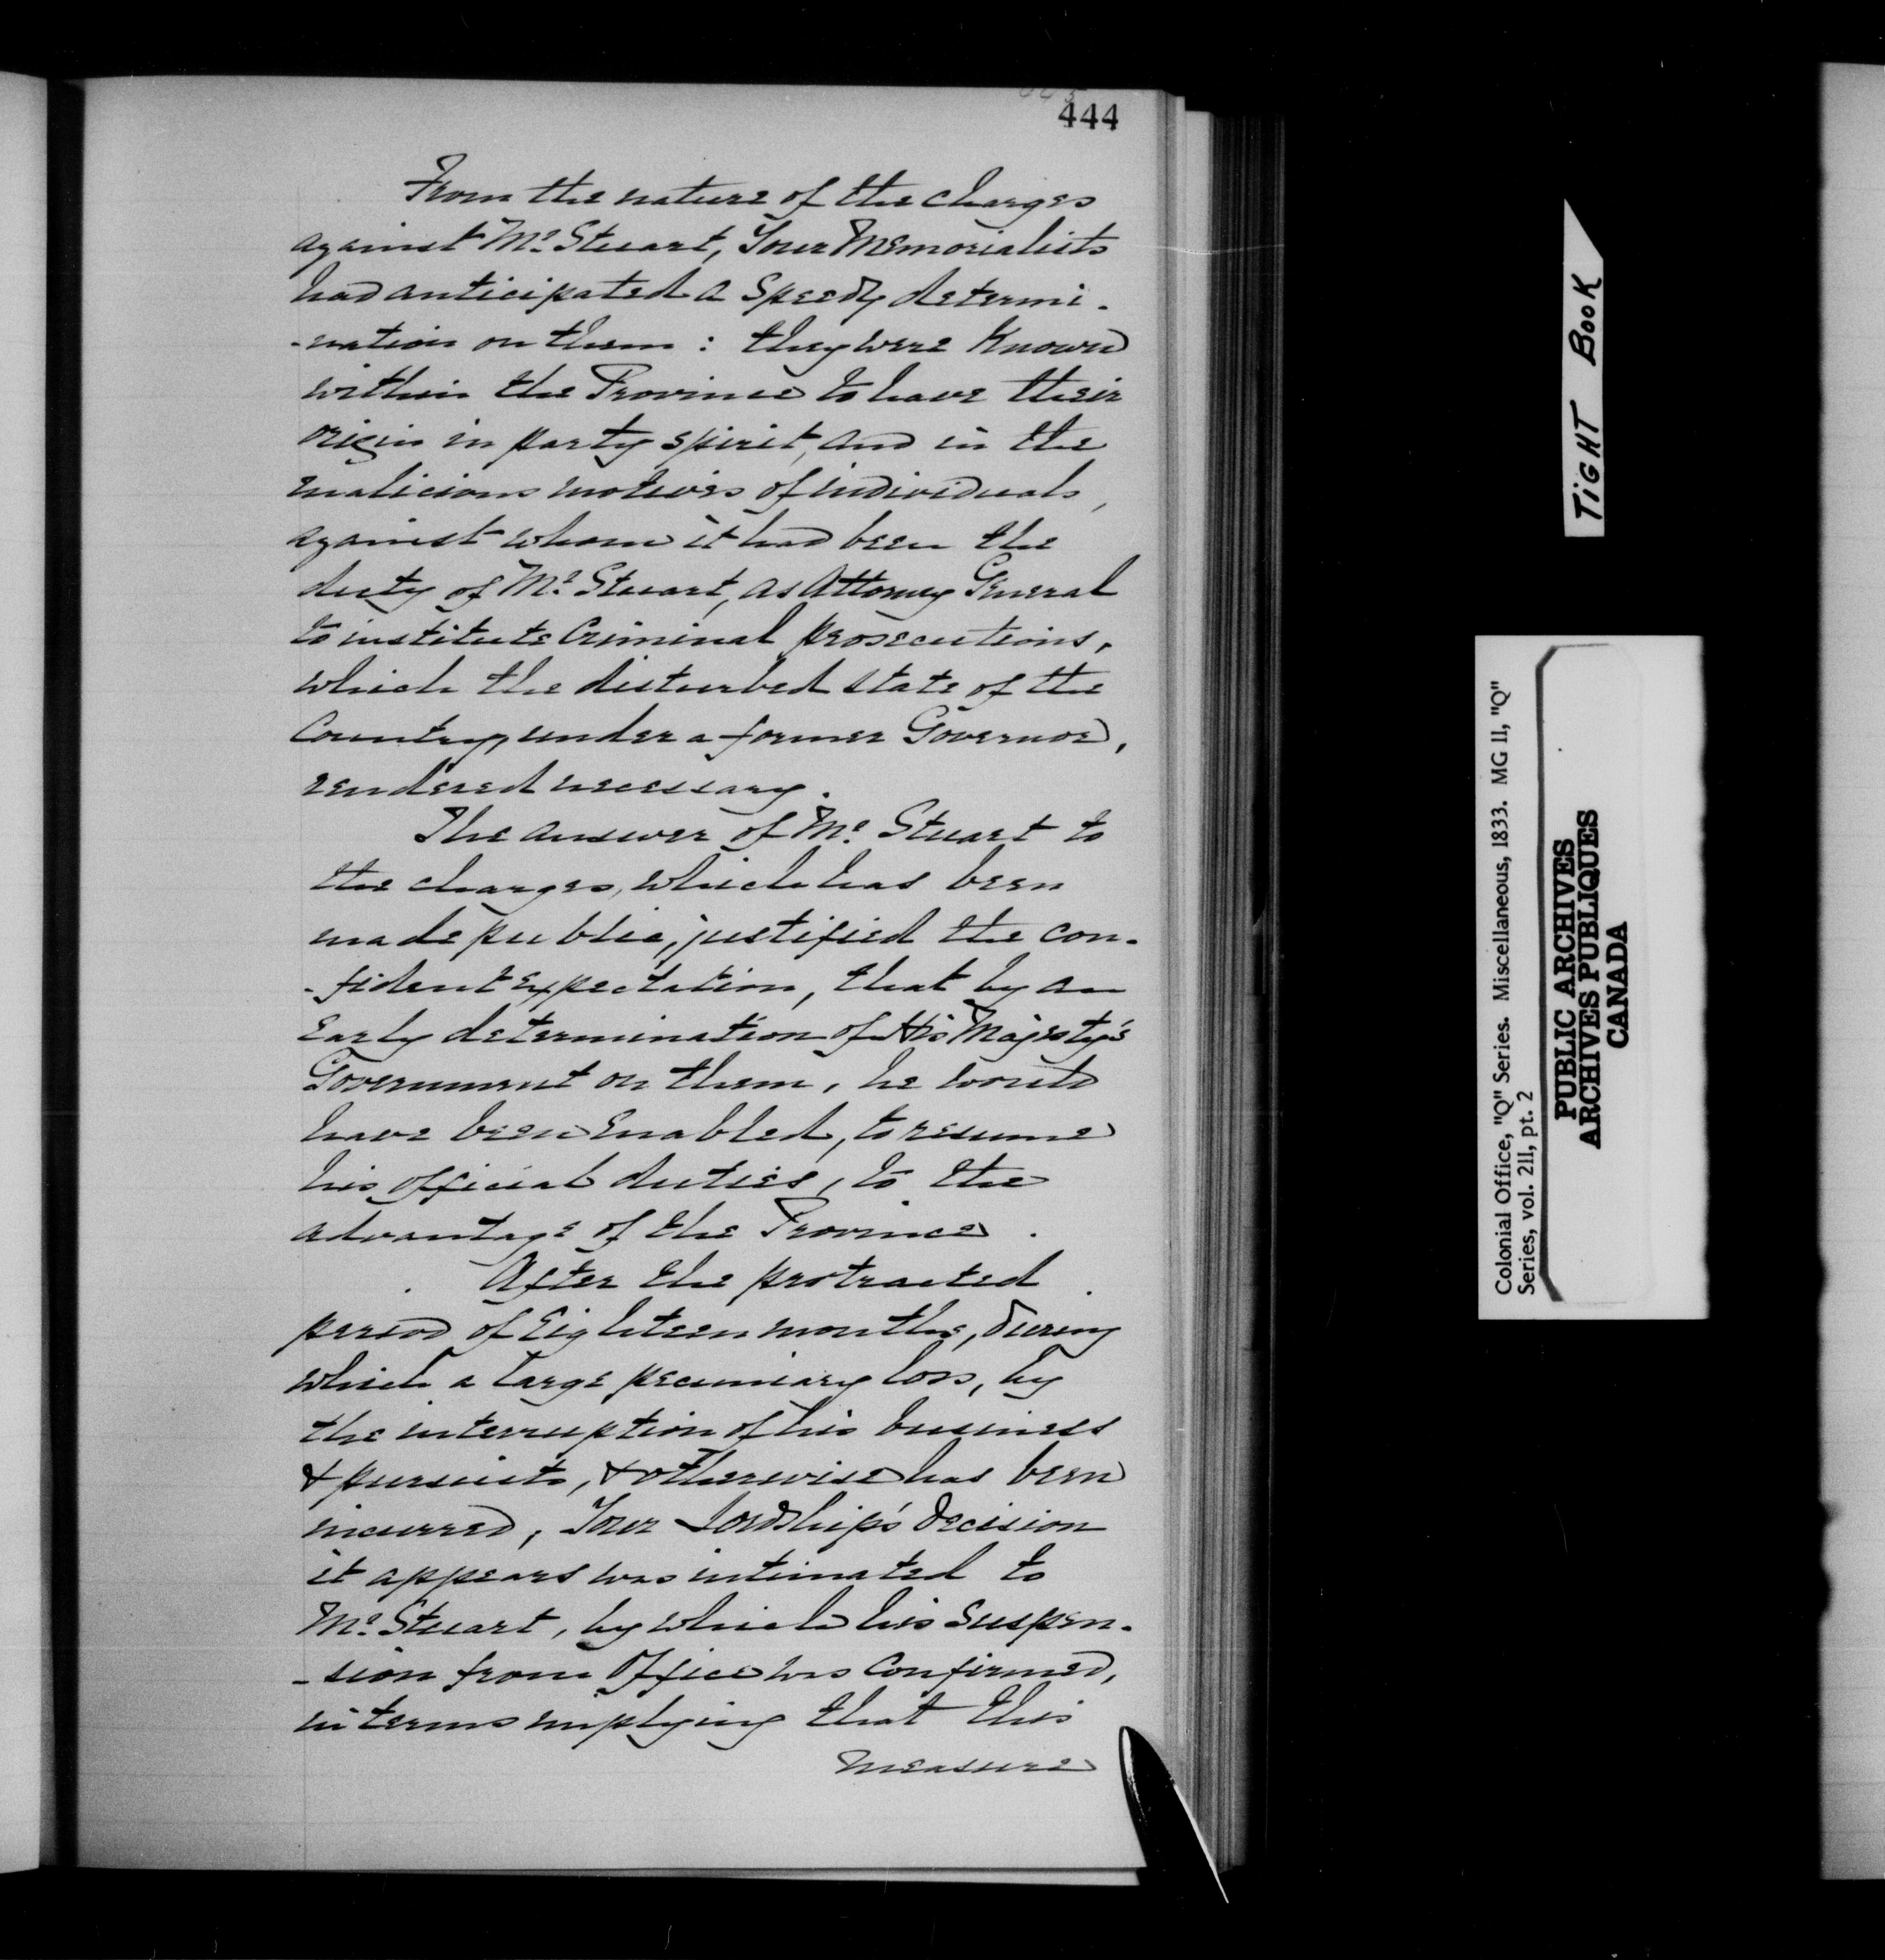 444
From the nature of the charges
against Mr. Stuart, Your Memorialists
had anticipated a speedy determi-
-nation on them : they were known
within the Province to have their
origin in party spirit, and in the
malicious motives of individuals,
against whom it had been the
duty of Mr. Stuart, as Attorney General
to institute Criminal prosecutions,
which the disturbed state of the
Country, under a former Governor,
rendered necessary.
The answer of Mr. Stuart to
the charges, which has been
made public, justified the con-
-fident expectation, that by an
early determination of His Majesty's
Government on them, he would
have been enabled, to resume
his official duties, to the
advantage of the Province.
After the protracted
period of Eighteen months, during
which a large pecuniary loss, by
the interruption of his business
& pursuits, & otherwise has been
incurred, Your Lordship's decision
it appears was intimated to
Mr. Stuart, by which his suspen-
-sion from Office was confirmed,
in terms implying that this
measure
TIGHT BOOK
Colonial Office, "Q" Series. Miscellaneous, 1833. MG 11, "Q"
Series, vol. 211, pt. 2
PUBLIC ARCHIVES
ARCHIVES PUBLIQUES
CANADA